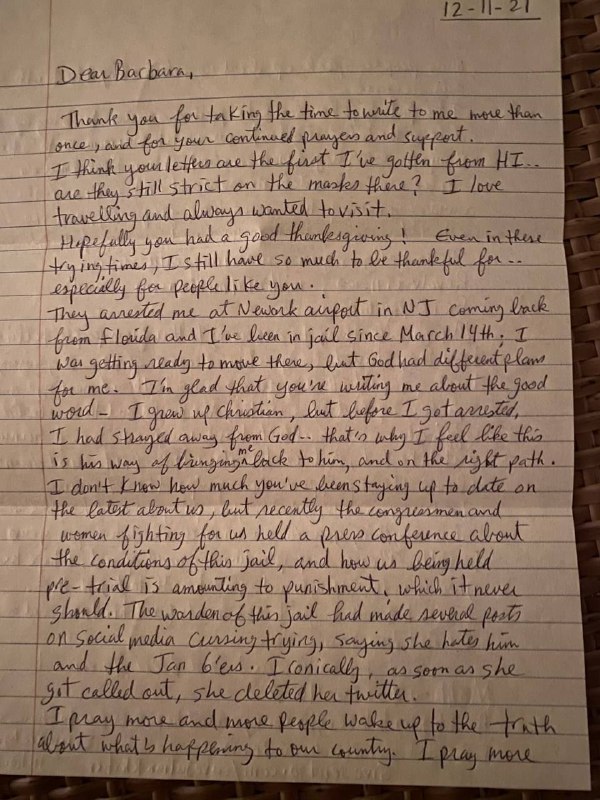 12-11-21
Dear Barbara,
Thank you for taking the time to write to me more than
once, and for your continued prayers and support.
I think your letters are the first I've gotten from HI..
are they still strict on the masks there? I love
travelling and always wanted to visit.
Hopefully you had a good thanksgiving! Even in these
trying times, I still have so much to be thankful for..
especially for people like you.
They arrested me at Newark airport in NJ coming back
from Florida and I've been in jail since March 14th; I
was getting ready to move there, but God had different plans
for me. I'm glad that you're writing me about the good
word- I grew up Christian, but before I got arrested,
I had strayed away from God.. that's why I feel like this
is his way of bringing me back to him, and on the right path.
I don't know how much you've been staying up to date on
the latest about us, but recently the congressmen and
women fighting for us held a press conference about
the conditions of this jail, and how us being held
pre-trial is amounting to punishment, which it never
should. The warden of this jail had made several posts
on social media cursing trying, saying she hates him
and the Jan 6'ers. Ironically, as soon as she
got called out, she deleted her twitter.
I pray more and more people wake up to the truth
about what is happening to our country. I pray more